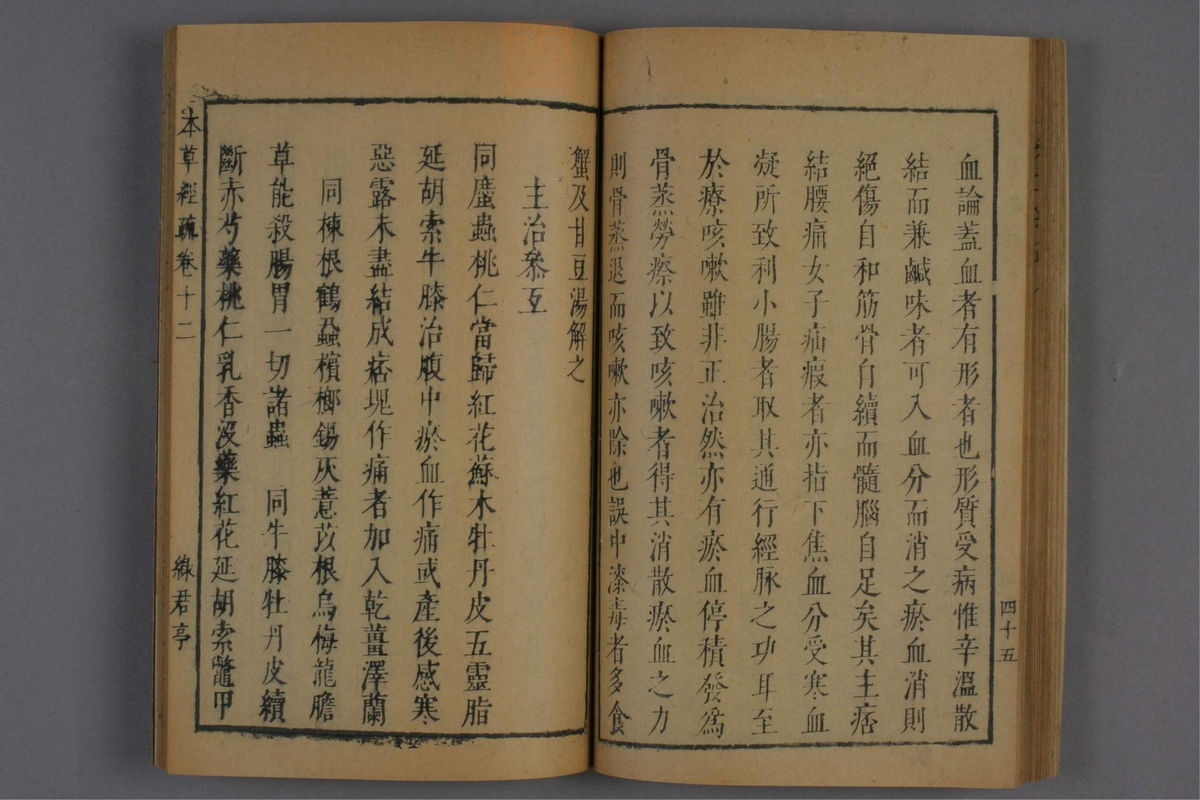 血論蓋血者有形者也形質受病惟辛溫散
結而兼鹹味者可入血分而消之瘀血消則
絕傷自和筋骨自續而髓腦自足矣其主痞
結腰痛女子疝瘕者亦指下焦血分受寒血
凝所致利小腸者取其通行經脉之功耳至
於療咳嗽雖非正治然亦有瘀血停積發爲
骨蒸勞瘵以致咳嗽者得其消散瘀血之力
則骨蒸退而咳嗽亦除也誤中漆毒者多食
四十五
蟹及甘豆湯解之
主治叅互
同䗪蟲桃仁當歸紅花蘇木牡丹皮五靈脂
延胡索牛膝治腹中瘀血作痛或產後感寒
惡露未盡結成痞塊作痛者加入乾薑澤蘭
同楝根鶴蝨檳榔錫灰薏苡根烏梅龍膽
草能殺腸胃一切諸蟲　同牛膝牡丹皮續
斷赤芍藥桃仁乳香沒藥紅花延胡索鼈甲
本草經疏卷十二
綠君亭